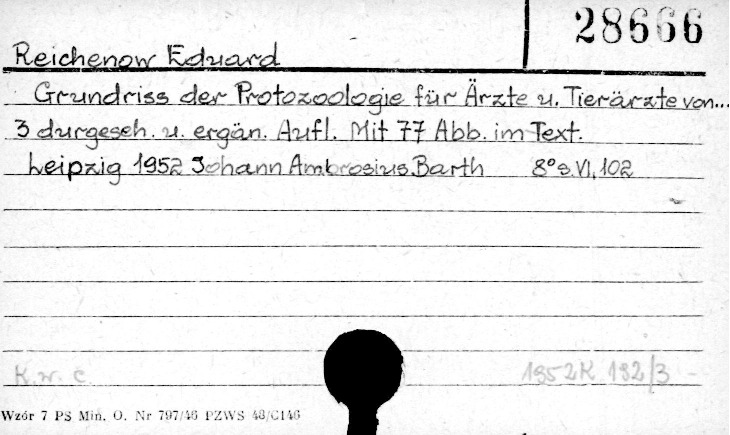 28666
Reichenow Eduard
Grundriss der Protozoologie für Ärzte u. Tierärzte von...
3 durgeseh. u. ergän. Aufl. Mit 77 Abb. im Text.
Leipzig 1952 Johann Ambrosius Barth 8° s. VI, 102
K.w. c. 1952K 192/3 -
Wzór 7 PS Min. O. Nr 797/46 PZWS 48/C146